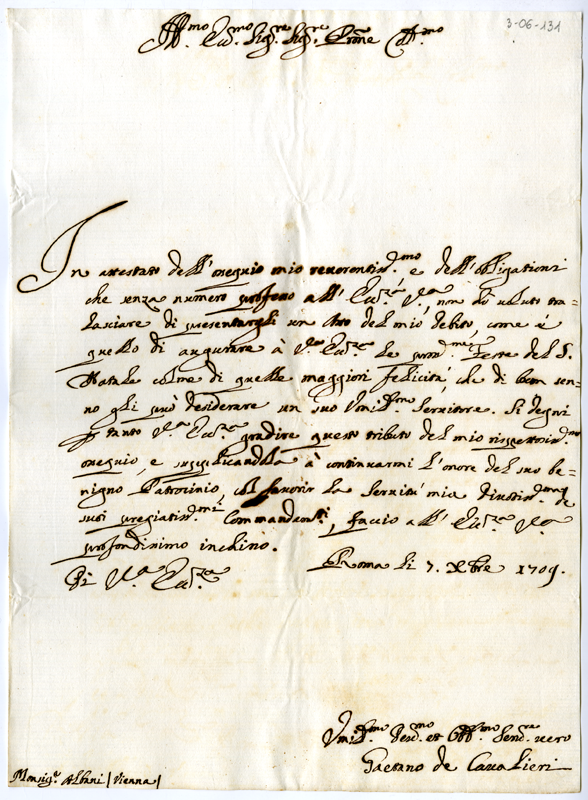 3-06-131
Ill.mo Ecc.mo Sig.re Sig.re Prone Coll.mo
In attestato dell'ossequio mio reverentiss.mo e dell'obligationi
che senza numero professo all'Ecc.za V.ra, non hò voluto tra=
lasciare di presentargli un Atto del mio debito, come è
quello di augurare à V.ra Ecc.za le pross.me Feste del S.
Natale colme di quelle maggiori felicità, che di buon sen=
no gli può desiderare un suo Umiliss.mo Servitore. Si degni
p tanto V.ra Ecc.za gradire questo tributo del mio rispettosiss.mo
ossequio, e supplicandola à continuarmi l'onore del suo be=
nigno Patrocinio, col favorir la Servitù mia de
suoi pregiatiss.mi Commandam.ti, faccio all'Ecc.za V.ra
profondissimo inchino.
Di V.ra Ecc.za
Roma li 7. Xbre 1709.
Umiliss.mo Dev.mo et Obl.mo Serv.re vero
Gaetano de Cavalieri
Monsig.r Albani / Vienna /